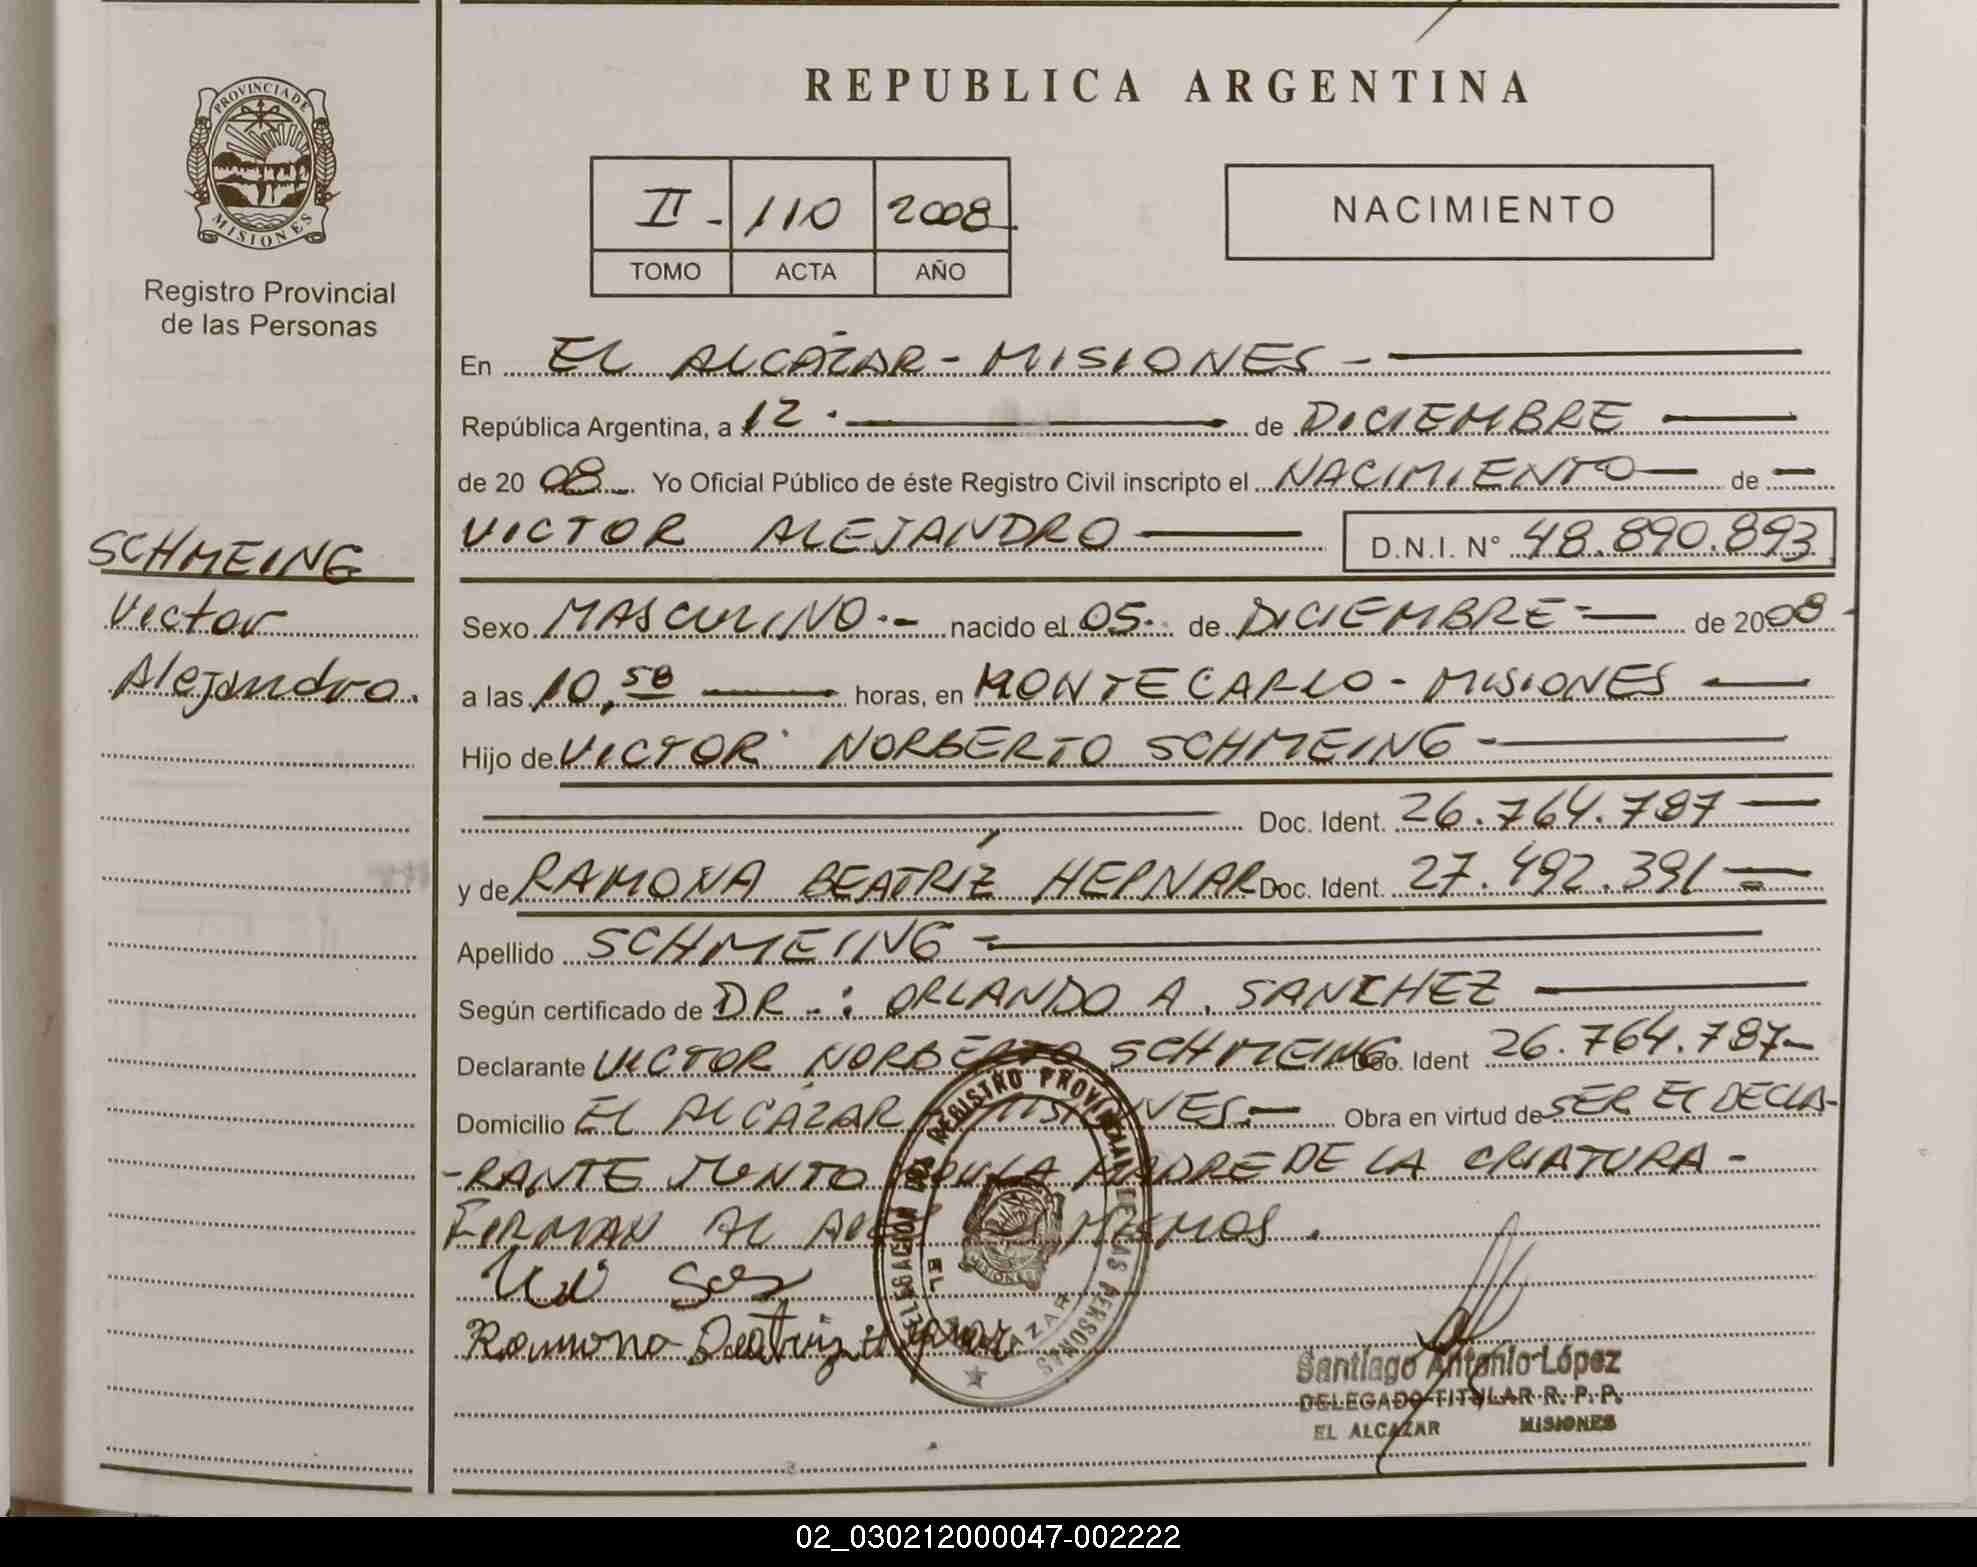 PROVINCIA DE
MISIONES
Registro Provincial
de las Personas
SCHMEING
Victor
Alejandro.
REPUBLICA ARGENTINA
II - 110 2008
TOMO ACTA AÑO
NACIMIENTO
En EL ALCÁZAR - MISIONES -
República Argentina, a 12 . de DICIEMBRE
de 20 08 Yo Oficial Público de éste Registro Civil inscripto el NACIMIENTO de
VICTOR ALEJANDRO D.N.I. N° 48.890.893
Sexo MASCULINO.- nacido el 05. de DICIEMBRE - de 2008 -
a las 10,58 horas, en MONTECARLO - MISIONES
Hijo de VICTOR NORBERTO SCHMEING -
Doc. Ident. 26.764.787
y de RAMONA BEATRÍZ HEPNAR. Doc. Ident. 27.492.391
Apellido SCHMEING -
Según certificado de DR.: ORLANDO A. SANCHEZ
Declarante VICTOR NORBERTO SCHMEING Doc. Ident 26.764.787-
Domicilio EL ALCÁZAR MISIONES.- Obra en virtud de SER EL DECLA-
-RANTE JUNTO CON LA MADRE DE LA CRIATURA -
FIRMAN AL MISMOS .
Ramona Beatriz Hepnar
DELEGACION DEL REGISTRO PROVINCIAL DE LAS PERSONAS
EL ALCAZAR
MISIONES
Santiago Antonio López
DELEGADO TITULAR R. P. P.
EL ALCAZAR MISIONES
02_030212000047-002222